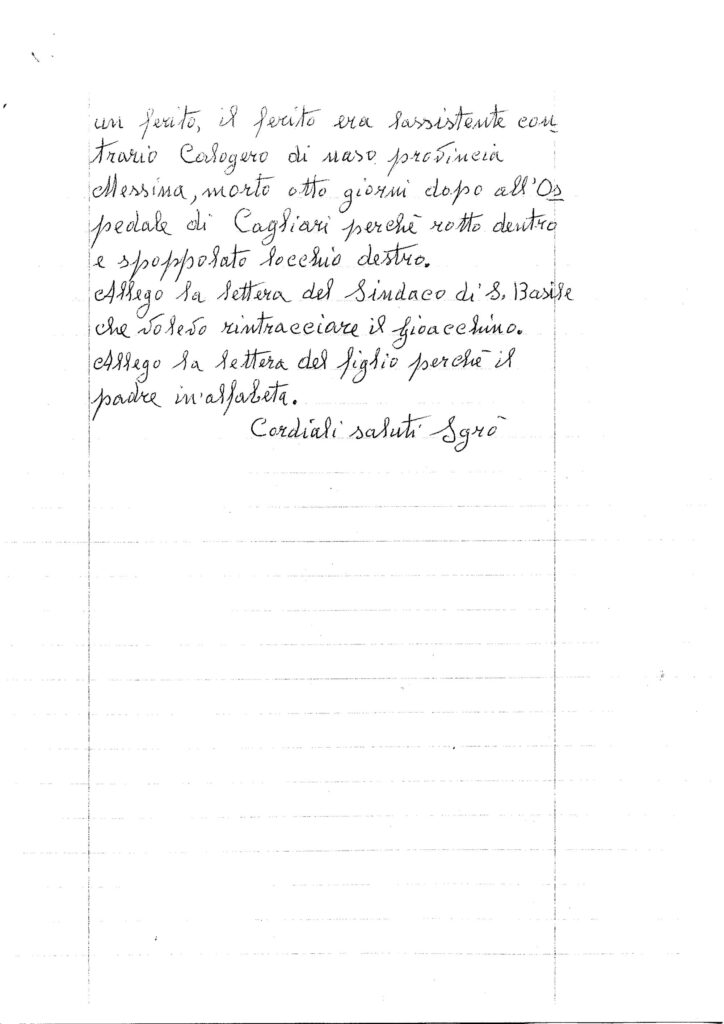 un ferito, il ferito era lassistente con
trario Calogero di naso provincia
Messina, morto otto giorni dopo all'Os
pedale di Cagliari perchè rotto dentro
e spoppolato locchio destro.
Allego la lettera del Sindaco di S. Basile
che volevo rintracciare il Gioacchino.
Allego la lettera del figlio perchè il
padre in'alfabeta.
Cordiali saluti Sgrò